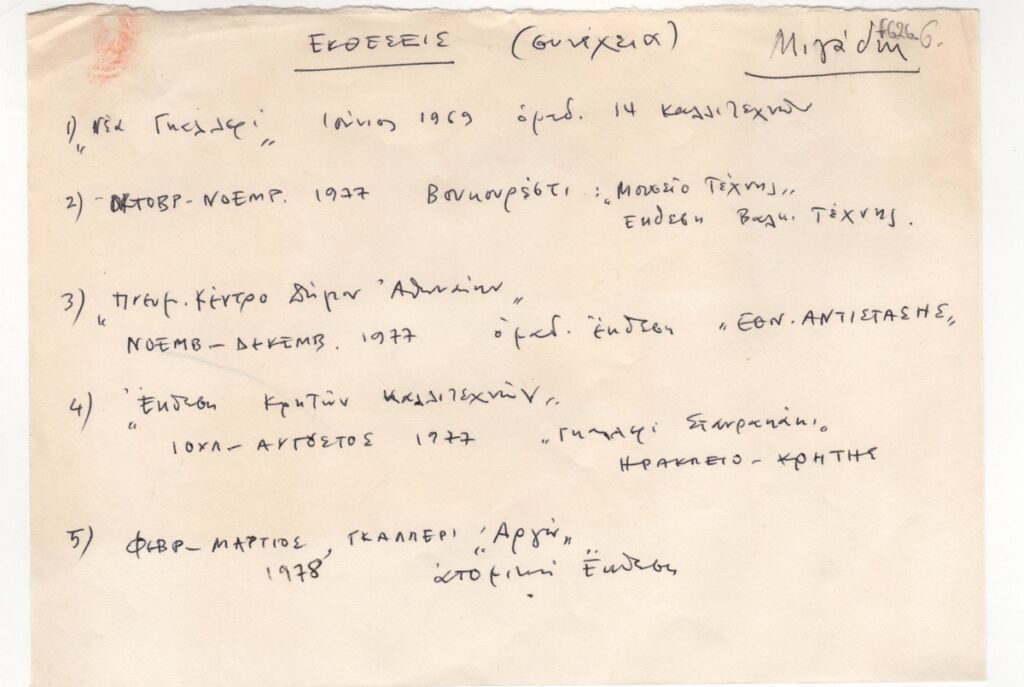 ΕΚΘΕΣΕΙΣ (συνέχεια) Μιγάδη f626a 6.
1) „Νέα Γκαλλερί„ Ιούνιος 1969 ὁμαδ. 14 καλλιτεχνῶν
2) - ΟΚΤΟΒΡ - ΝΟΕΜΡ. 1977 Βουκουρέστι : „Μουσείο Τέχνης„
Εκθεση Βαλκ. Τέχνης.
3) „Πνευμ. Κέντρο Δήμου Ἀθηναίων„
ΝΟΕΜΒ - ΔΕΚΕΜΒ. 1977 ὁμαδ. Ἔκθεση „ΕΘΝ. ΑΝΤΙΣΤΑΣΗΣ„
4) „Ἔκθεση Κρητῶν Καλλιτεχνῶν„
ΙΟΥΛ - ΑΥΓΟΥΣΤΟΣ 1977 „Γκαλερί Σταυρακάκι„
ΗΡΑΚΛΕΙΟ - ΚΡΗΤΗΣ
5) ΦΕΒΡ - ΜΑΡΤΙΟΣ , ΓΚΑΛΛΕΡΙ „Αργώ„
1978 ἀτομική Ἔκθεση